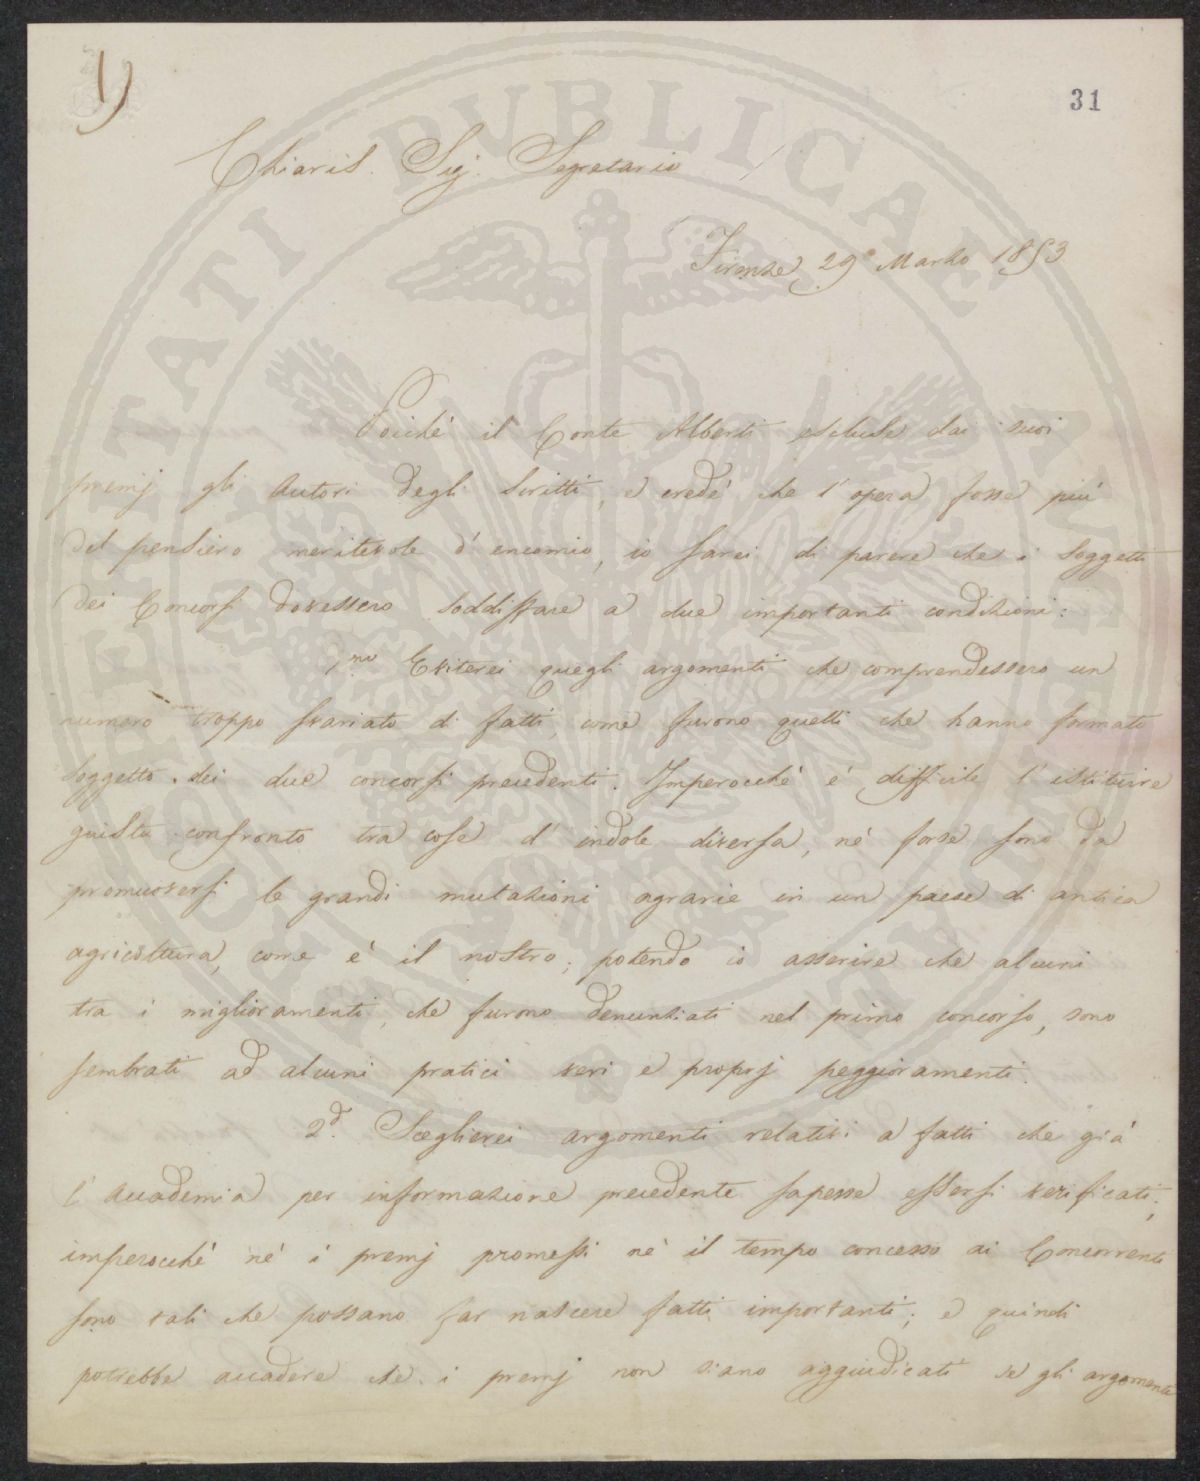 1)
31
Chiaris. Sig. Segretario
Firenze, 29 Marzo 1853
Poiché il Conte Alberti escluse dai suoi
premj gli Autori degli Scritti, e credé che l'opera fosse più
del pensiero meritevole d'encomio, io sarei di parere che i soggetti
dei Concorsi dovessero soddisfare a due importanti condizioni:
1.mo Eviterei quegli argomenti che comprendessero un
numero troppo svariato di fatti, come furono quelli che hanno formato
soggetto dei due concorsi precedenti. Imperocché é difficile l'istituire
giusto confronto tra cose d'indole diversa, né forse sono da
promuoversi le grandi mutazioni agrarie in un paese di antica
agricoltura, come é il nostro; potendo io asserire che alcuni
tra i miglioramenti, che furono denunziati nel primo concorso, sono
sembrati ad alcuni pratici veri e proprj peggioramenti.
2.d Sceglierei argomenti relativi a fatti che già
l'Accademia per informazione precedente sapesse essersi verificati;
imperocché né i premj promessi né il tempo concesso ai Concorrenti
sono tali che possano far nascere fatti importanti; e quindi
potrebbe accadere che i premj non siano aggiudicati se gli argomenti
POTEITATI PUBLICAE